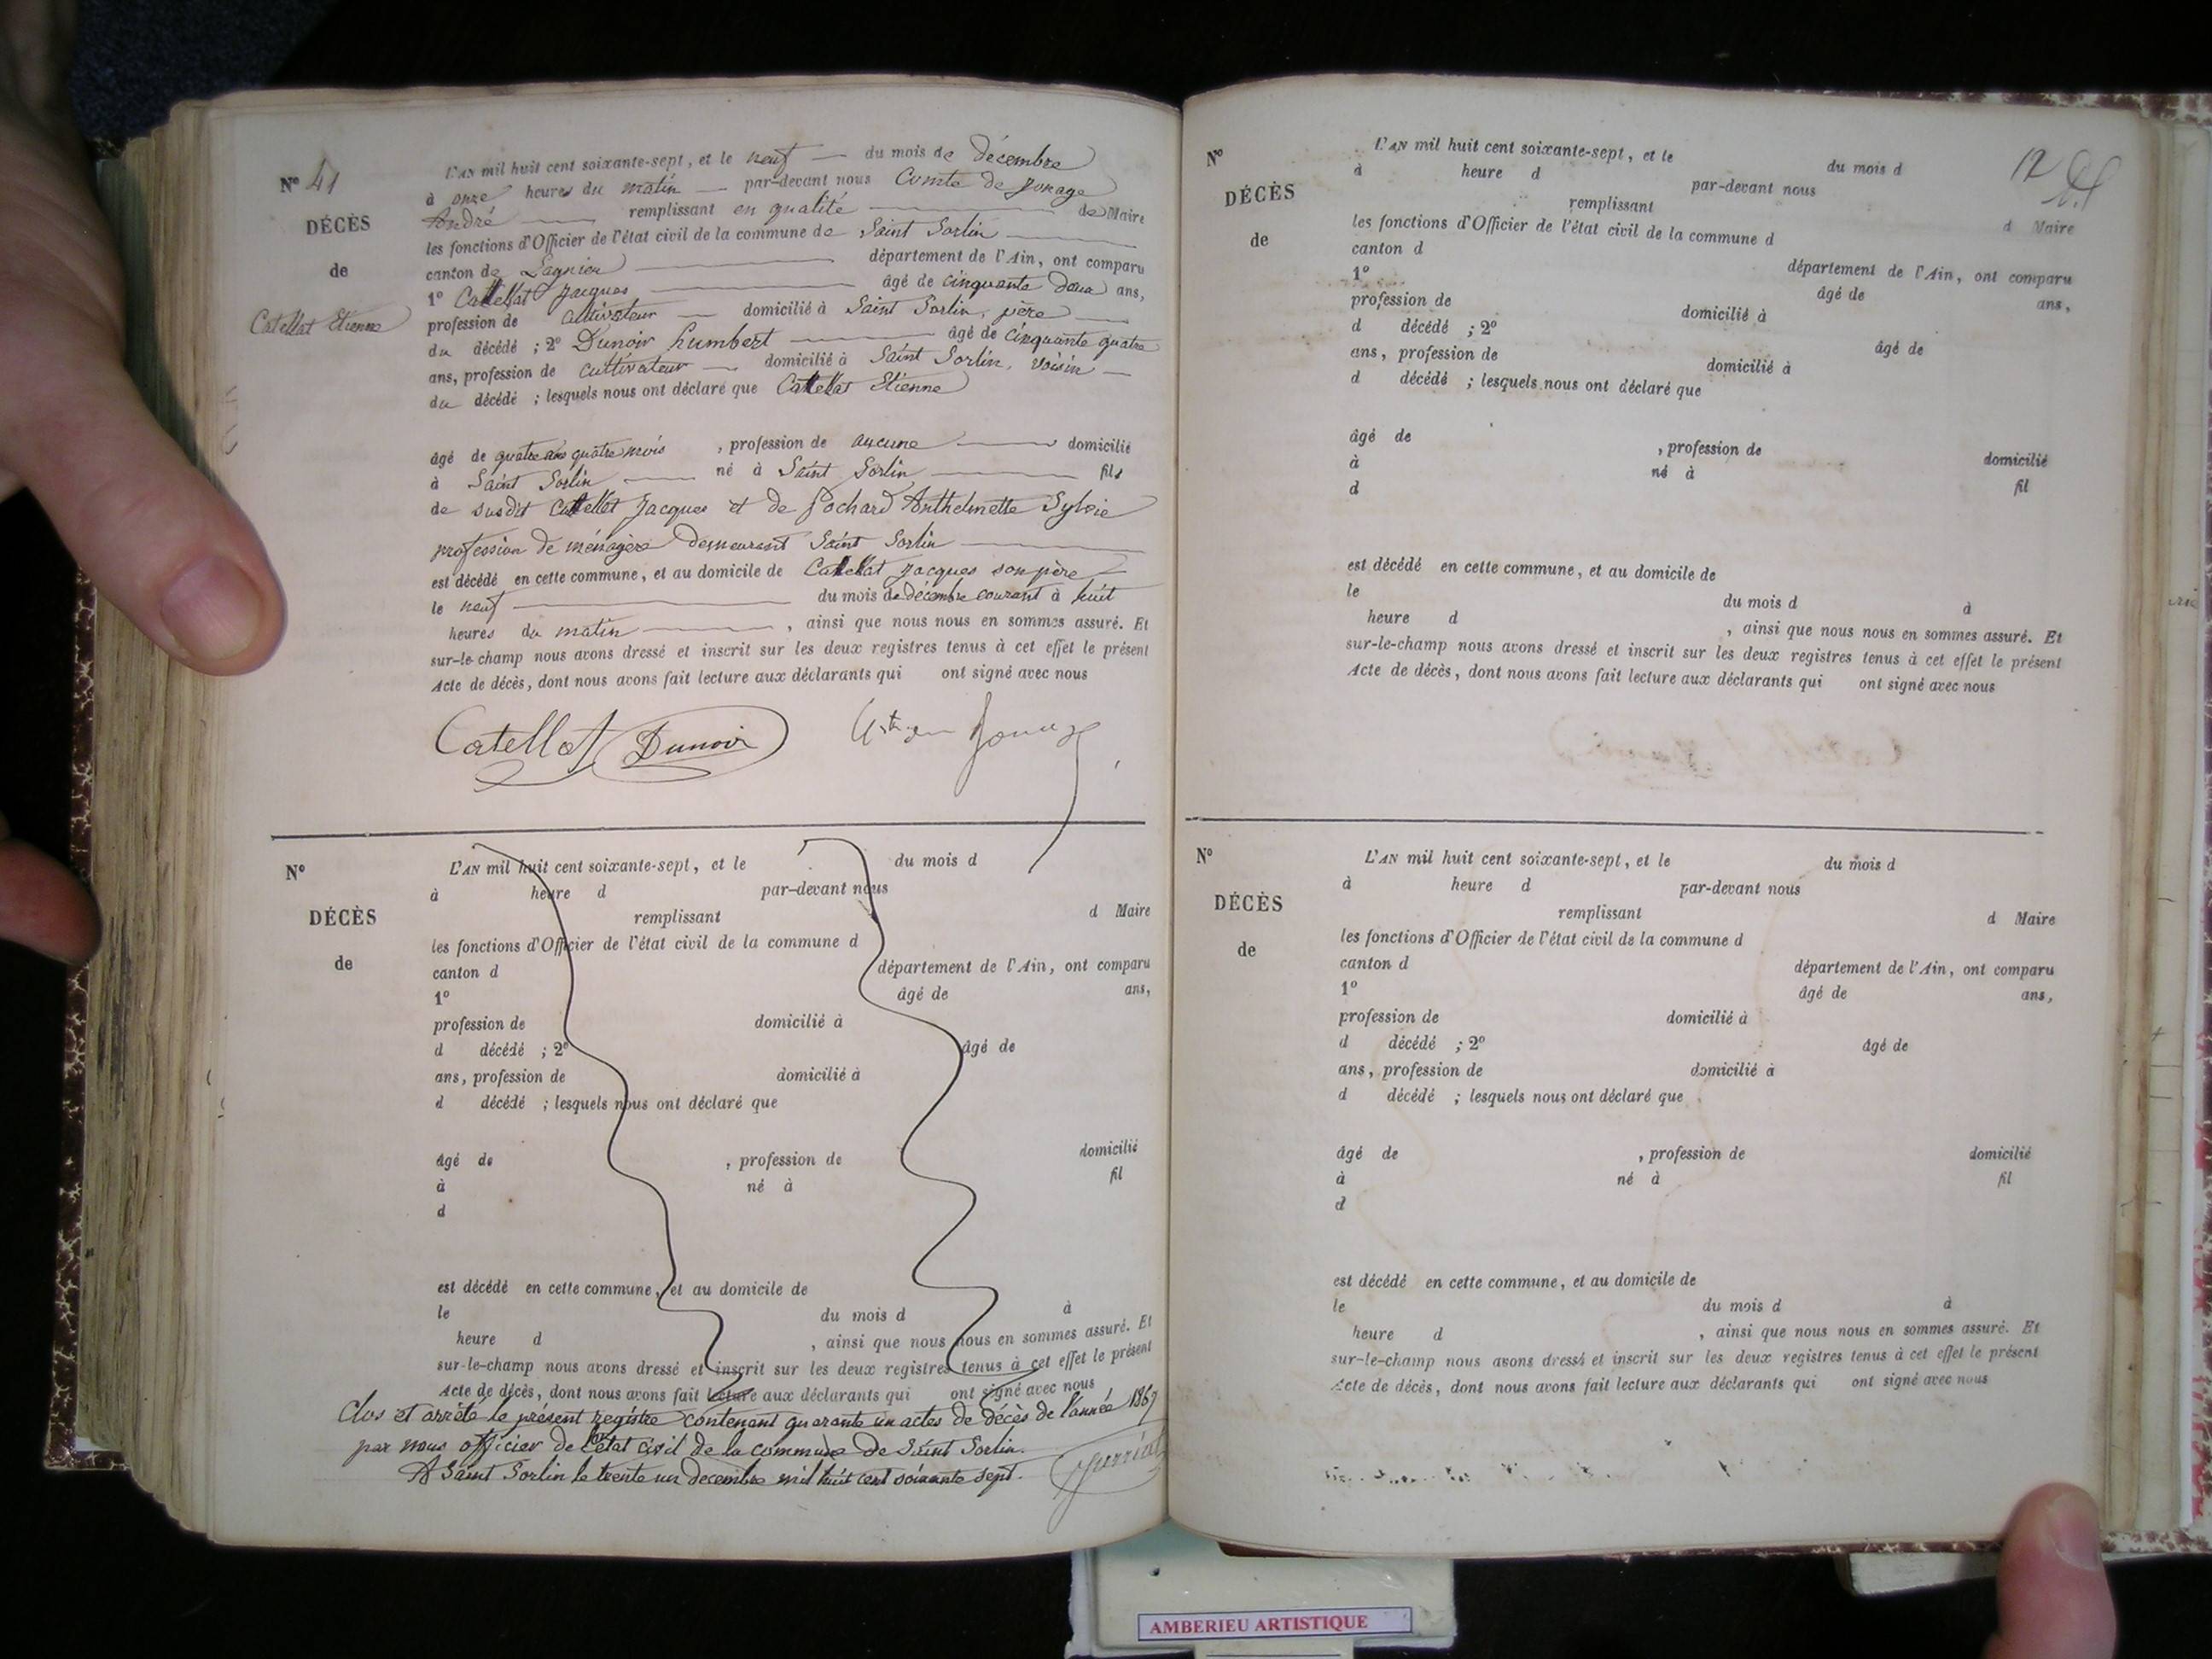 N° 41
DÉCÈS
de
Catellat Etienne
L'AN mil huit cent soixante-sept, et le neuf du mois de décembre
à onze heures du matin par-devant nous Comte de Jonage
André remplissant en qualité de Maire
les fonctions d'Officier de l'état civil de la commune de Saint Sorlin
canton de Lagnieu département de l'Ain, ont comparu
1° Catellat Jacques âgé de cinquante deux ans,
profession de cultivateur domicilié à Saint Sorlin, père
du décédé ; 2° Dunoir humbert âgé de cinquante quatre
ans, profession de cultivateur domicilié à Saint Sorlin, voisin
du décédé ; lesquels nous ont déclaré que Catellat Etienne
âgé de quatre ans quatre mois , profession de aucune domicilié
à Saint Sorlin né à Saint Sorlin fils
de susdit Catellat Jacques et de Pochard Anthelmette Sylvie
profession de ménagère demeurant Saint Sorlin
est décédé en cette commune, et au domicile de Catellat Jacques son père
le neuf du mois de décembre courant à huit
heures du matin , ainsi que nous nous en sommes assuré. Et
sur-le-champ nous avons dressé et inscrit sur les deux registres tenus à cet effet le présent
Acte de décès, dont nous avons fait lecture aux déclarants qui ont signé avec nous
Catellat Dunoir Cte de Jonage
N°
DÉCÈS
de
L'AN mil huit cent soixante-sept, et le du mois d
à heure d par-devant nous
remplissant d Maire
les fonctions d'Officier de l'état civil de la commune d
canton d département de l'Ain, ont comparu
1° âgé de ans,
profession de domicilié à
d décédé ; 2° âgé de
ans, profession de domicilié à
d décédé ; lesquels nous ont déclaré que
âgé de , profession de domicilié
à né à fil
d
est décédé en cette commune, et au domicile de
le du mois d à
heure d , ainsi que nous nous en sommes assuré. Et
sur-le-champ nous avons dressé et inscrit sur les deux registres tenus à cet effet le présent
Acte de décès, dont nous avons fait lecture aux déclarants qui ont signé avec nous
Clos et arrêté le présent registre contenant quarante un actes de décès de l'année 1867
par nous officier de l'état civil de la commune de Saint Sorlin.
A Saint Sorlin le trente un decembre mil huit cent soixante sept.
N°
DÉCÈS
de
12
L'AN mil huit cent soixante-sept, et le du mois d
à heure d par-devant nous
remplissant d Maire
les fonctions d'Officier de l'état civil de la commune d
canton d département de l'Ain, ont comparu
1° âgé de ans,
profession de domicilié à
d décédé ; 2° âgé de
ans, profession de domicilié à
d décédé ; lesquels nous ont déclaré que
âgé de , profession de domicilié
à né à fil
d
est décédé en cette commune, et au domicile de
le du mois d à
heure d , ainsi que nous nous en sommes assuré. Et
sur-le-champ nous avons dressé et inscrit sur les deux registres tenus à cet effet le présent
Acte de décès, dont nous avons fait lecture aux déclarants qui ont signé avec nous
N°
DÉCÈS
de
L'AN mil huit cent soixante-sept, et le du mois d
à heure d par-devant nous
remplissant d Maire
les fonctions d'Officier de l'état civil de la commune d
canton d département de l'Ain, ont comparu
1° âgé de ans,
profession de domicilié à
d décédé ; 2° âgé de
ans, profession de domicilié à
d décédé ; lesquels nous ont déclaré que
âgé de , profession de domicilié
à né à fil
d
est décédé en cette commune, et au domicile de
le du mois d à
heure d , ainsi que nous nous en sommes assuré. Et
sur-le-champ nous avons dressé et inscrit sur les deux registres tenus à cet effet le présent
Acte de décès, dont nous avons fait lecture aux déclarants qui ont signé avec nous
AMBERIEU ARTISTIQUE